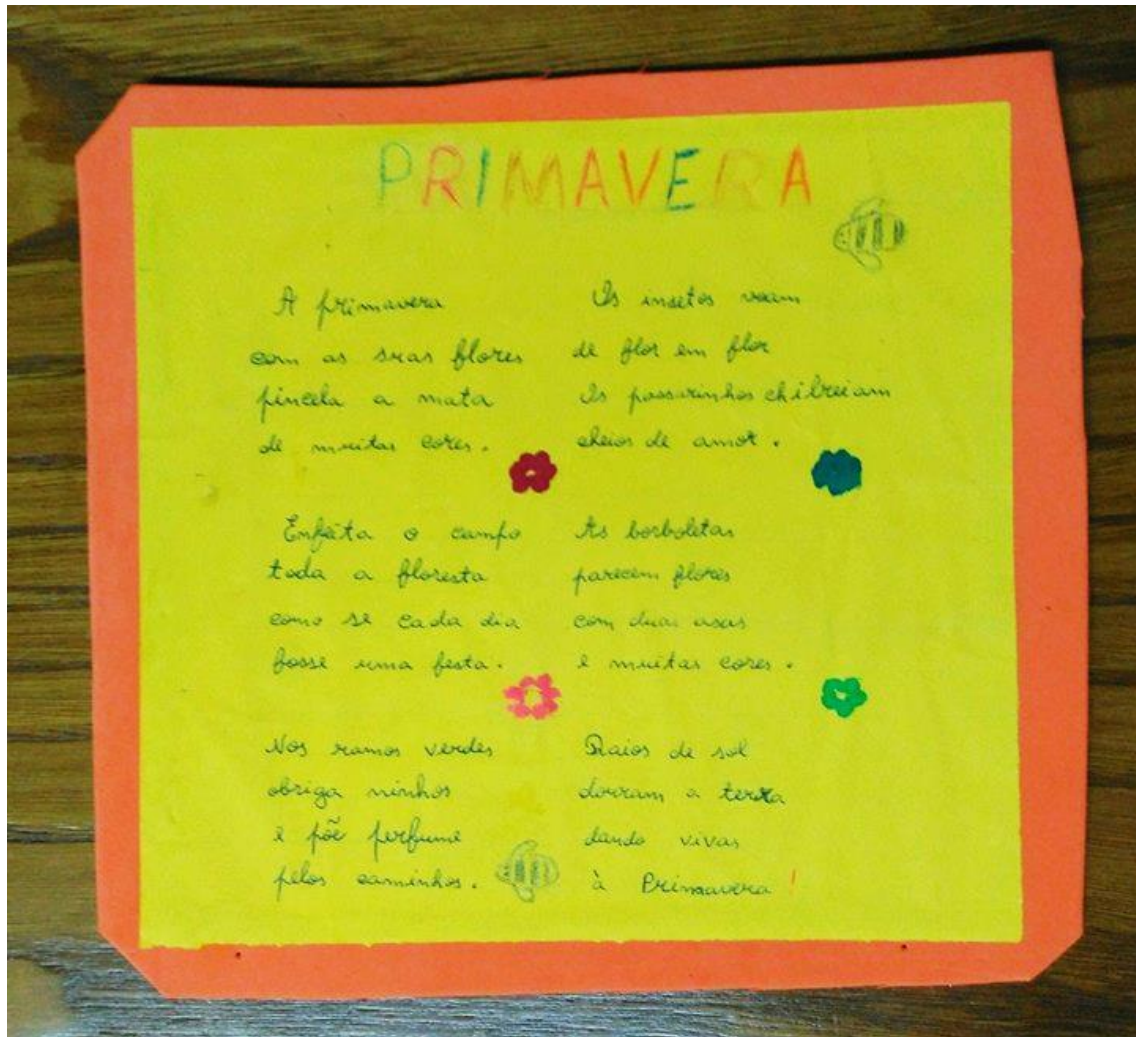 PRIMAVERA
A primavera
com as suas flores
pincela a mata
de muitas cores.
Enfeita o campo
toda a floresta
como se cada dia
fosse uma festa.
Nos ramos verdes
obriga ninhos
e põe perfume
pelos caminhos.
Os insetos voam
de flor em flor
Os passarinhos chibreiam
cheios de amor.
As borboletas
parecem flores
com duas asas
e muitas cores.
Raios de sol
dorram a terra
dando vivas
à Primavera!